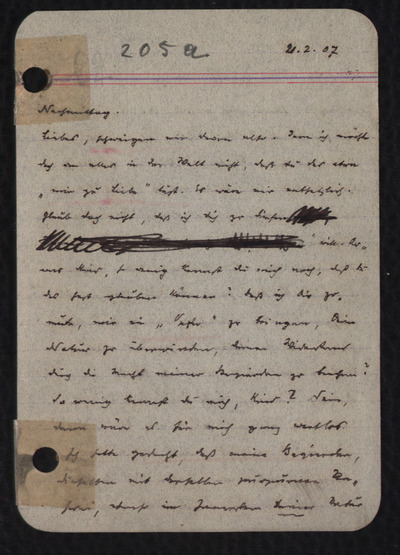 205a
21.2.07
Nachmittag.
Liebes, schweigen wir davon also. Denn ich möchte
doch um alles in der Welt nicht, daß du das etwa
„mir zu Liebe" tust. Es wäre mir entsetzlich.
Glaube doch nicht, daß ich dich zu
will.
Kind, so wenig kennst du mich noch, daß du
das fast glauben könntest? daß ich dir zu-
mute, mir ein „Opfer" zu bringen, Deine
Natur zu überwinden, deren Widerstand
durch die Macht meiner Begierden zu brechen?
So wenig kennst du mich, Kind? Nein,
denn wäre es für mich ganz wertlos
Ich hatte gedacht, daß meine Begierden,
dieselben mit derselben
etwas im Innersten Deiner Natur